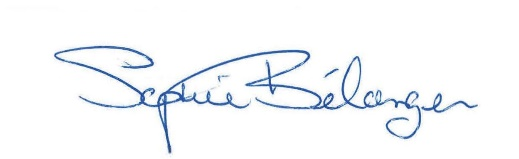 Sophie Bélanger